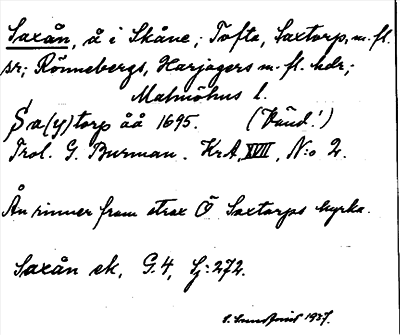 Saxån, å i Skåne; Tofta, Saxtorp, m. fl.
sr; Rönnebergs, Harjagers m. fl. hdr;
Malmöhus l.
Sa(y)torp åå 1695. (Vänd!)
Trol. G. Burman. KrA, XVII, N:o 2.
Ån rinner fram strax Ö Saxtorps kyrka.
Saxån ek, G. 4, Lj: 272.
1937.